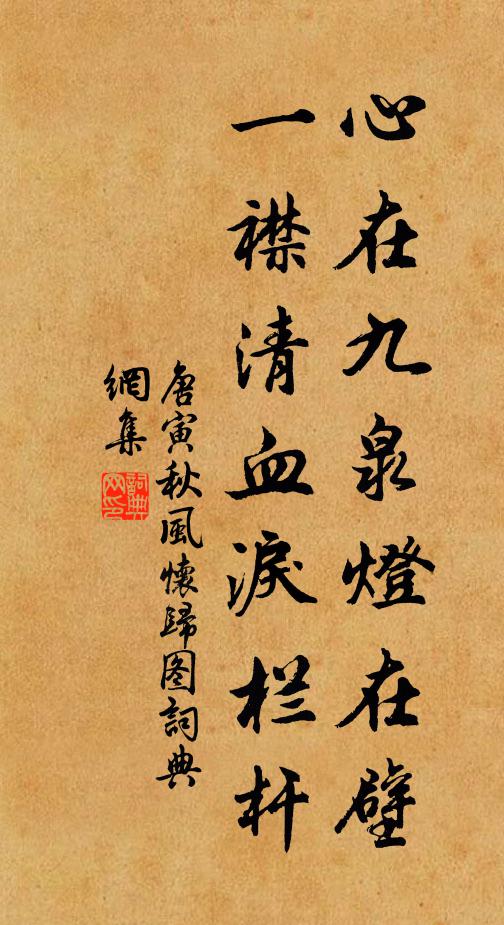 心在九泉燈在壁
一襟清血淚栏杆
唐寅秋風懷歸图詞典
網集
詞典
网印